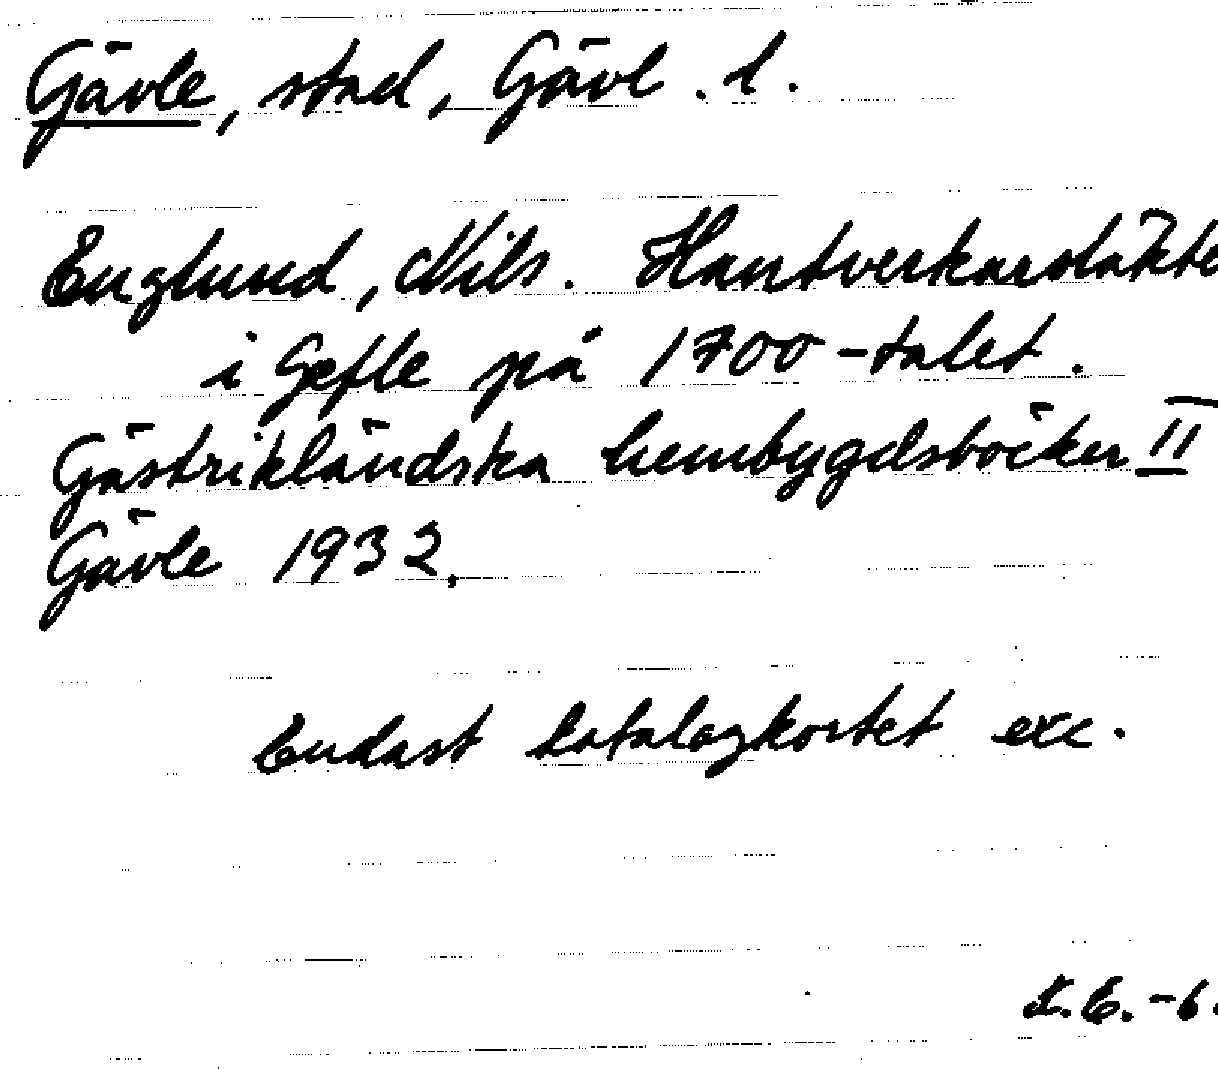 Gävle, stad, Gävl. l.
Englund, Nils. Hantverkarsläkte
i Gefle på 1700-talet.
Gästrikländska hembygdsböcker II
Gävle 1932.
Endast katalogkortet exc.